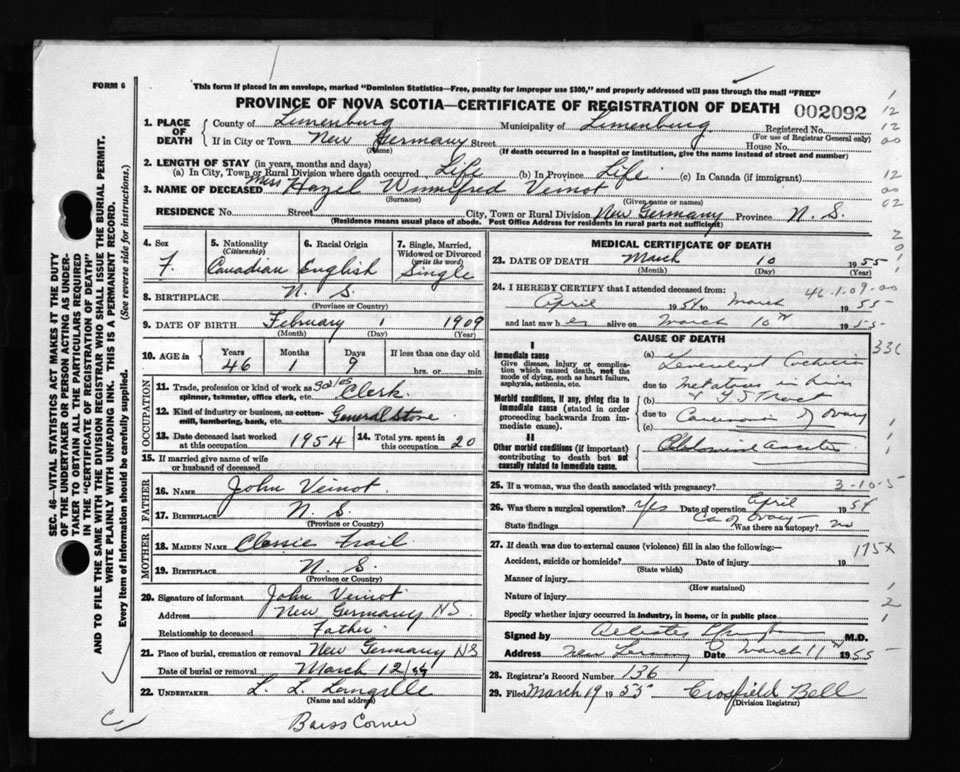 FORM 6
This form if placed in an envelope, marked "Dominion Statistics—Free, penalty for improper use $300," and properly addressed will pass through the mail "FREE"
PROVINCE OF NOVA SCOTIA—CERTIFICATE OF REGISTRATION OF DEATH 002092
1. PLACE OF DEATH County of Lunenburg Municipality of Lunenburg Registered No. (For use of Registrar General only)
If in City or Town New Germany Street House No.
(Name) (If death occurred in a hospital or institution, give the name instead of street and number)
2. LENGTH OF STAY (in years, months and days)
(a) In City, Town or Rural Division where death occurred Life (b) In Province Life (c) In Canada (if immigrant)
3. NAME OF DECEASED Miss Hazel Winnifred Veinot
(Surname) (Given name or names)
RESIDENCE No. Street City, Town or Rural Division New Germany Province N. S.
(Residence means usual place of abode. Post Office Address for residents in rural parts not sufficient)
4. Sex F.
5. Nationality (Citizenship) Canadian
6. Racial Origin English
7. Single, Married, Widowed or Divorced (write the word) Single
8. BIRTHPLACE N. S.
(Province or Country)
9. DATE OF BIRTH February 1 1909
(Month) (Day) (Year)
10. AGE in Years Months Days If less than one day old
46 1 9 hrs. or min.
OCCUPATION
11. Trade, profession or kind of work as spinner, teamster, office clerk, etc. Sales Clerk
12. Kind of industry or business, as cotton-mill, lumbering, bank, etc. General Store
13. Date deceased last worked at this occupation 1954 14. Total yrs. spent in this occupation 20
15. If married give name of wife or husband of deceased
FATHER
16. Name John Veinot
17. Birthplace N. S.
(Province or Country)
MOTHER
18. Maiden Name Classie Frail
19. Birthplace N. S.
(Province or Country)
20. Signature of informant John Veinot
Address New Germany NS
Relationship to deceased Father
21. Place of burial, cremation or removal New Germany NS
Date of burial or removal March 12/
22. UNDERTAKER L. L. Langille
(Name and address)
Barss Corner
MEDICAL CERTIFICATE OF DEATH
23. DATE OF DEATH March 10 1955
(Month) (Day) (Year)
24. I HEREBY CERTIFY that I attended deceased from: 46-1-09-00
April 1954 to March 1955
and last saw her alive on March 10th 1955
CAUSE OF DEATH
I
Immediate cause
Give disease, injury or complication which caused death, not the mode of dying, such as heart failure, asphyxia, asthenia, etc.
(a) Cachexia
due to
Morbid conditions, if any, giving rise to immediate cause (stated in order proceeding backwards from immediate cause).
(b)
due to Carcinoma of ovary
(c)
II
Other morbid conditions (if important) contributing to death but not causally related to immediate cause.
25. If a woman, was the death associated with pregnancy? 3-10-5
26. Was there a surgical operation? Yes Date of operation April 1954
State findings Ca of Ovary Was there an autopsy? no
27. If death was due to external causes (violence) fill in also the following:— 175X
Accident, suicide or homicide? Date of injury 19
(State which)
Manner of injury
(How sustained)
Nature of injury
Specify whether injury occurred in industry, in home, or in public place
Signed by M.D.
Address New Date March 11th 1955
28. Registrar's Record Number 136
29. Filed March 19 1955 Crosfield Bell
(Division Registrar)
SEC. 46—VITAL STATISTICS ACT MAKES IT THE DUTY
OF THE UNDERTAKER OR PERSON ACTING AS UNDERTAKER TO OBTAIN ALL THE PARTICULARS REQUIRED
IN THE "CERTIFICATE OF REGISTRATION OF DEATH"
AND TO FILE THE SAME WITH THE DIVISION REGISTRAR WHO SHALL ISSUE THE BURIAL PERMIT.
WRITE PLAINLY WITH UNFADING INK. THIS IS A PERMANENT RECORD.
Every item of information should be carefully supplied. (See reverse side for instructions.)